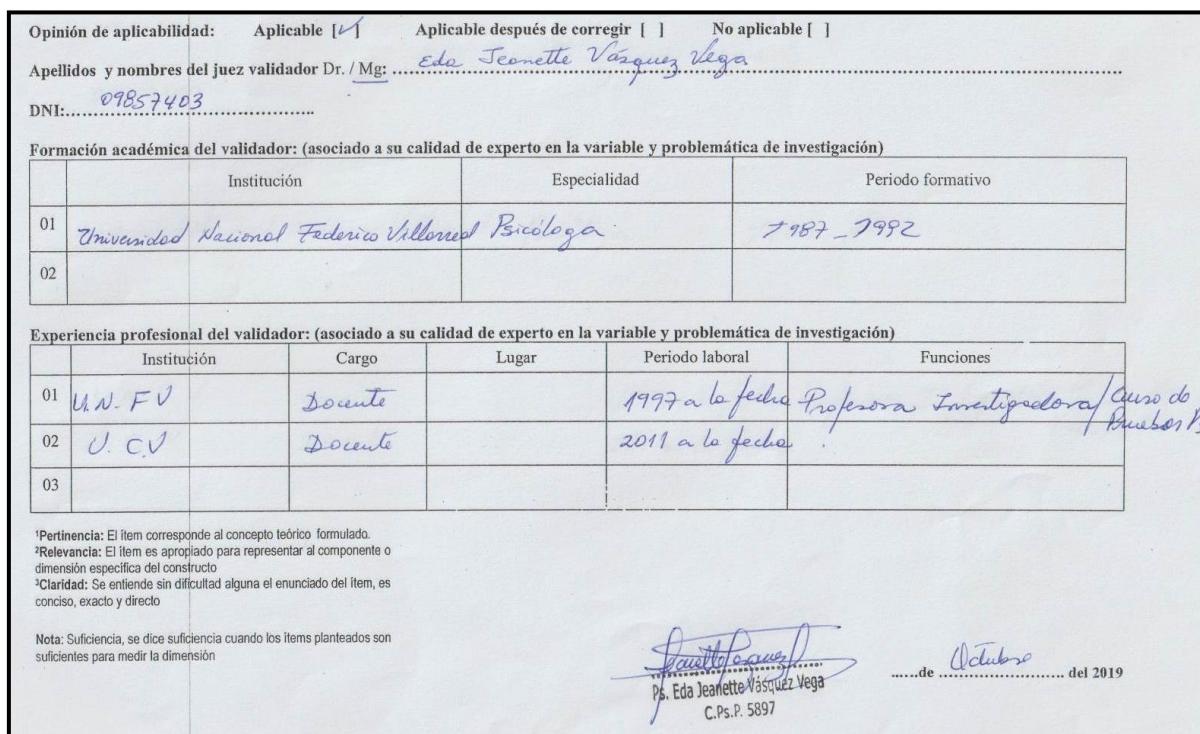 Opinión de aplicabilidad: Aplicable [✓] Aplicable después de corregir [ ] No aplicable [ ]
Apellidos y nombres del juez validador Dr. / Mg: Eda Jeanette Vásquez Vega
DNI: 09857403
Formación académica del validador: (asociado a su calidad de experto en la variable y problemática de investigación)
Institución Especialidad Periodo formativo
01 Universidad Nacional Federico Villarreal Psicóloga 1987-1992
02
Experiencia profesional del validador: (asociado a su calidad de experto en la variable y problemática de investigación)
Institución Cargo Lugar Periodo laboral Funciones
01 U.N.FV Docente 1997 a la fecha Profesora Investigadora/Curso de Pruebas
02 U.CV Docente 2011 a la fecha
03
¹Pertinencia: El ítem corresponde al concepto teórico formulado.
²Relevancia: El ítem es apropiado para representar al componente o
dimensión específica del constructo
³Claridad: Se entiende sin dificultad alguna el enunciado del ítem, es
conciso, exacto y directo
Nota: Suficiencia, se dice suficiencia cuando los ítems planteados son
suficientes para medir la dimensión
Ps. Eda Jeanette Vásquez Vega
C.Ps.P. 5897
......de Octubre del 2019